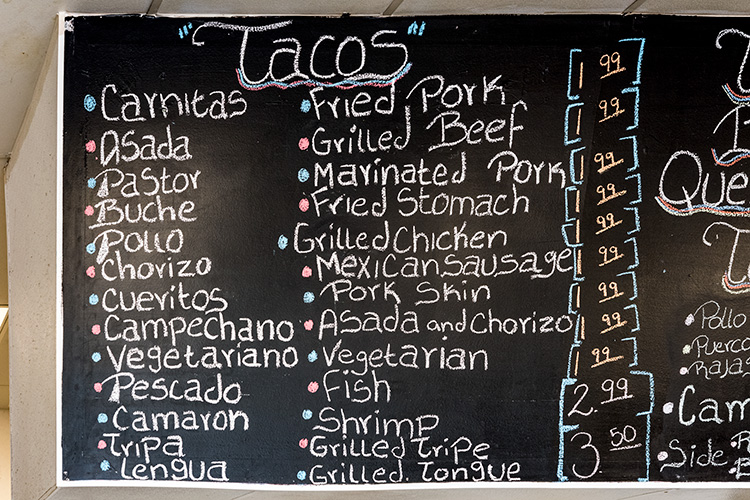 "Tacos"
Carnitas Fried Pork 1 99
Asada Grilled Beef 1 99
Pastor Marinated Pork 1 99
Buche Fried Stomach 1 99
Pollo Grilled Chicken 1 99
Chorizo Mexican Sausage 1 99
Cueritos Pork Skin 1 99
Campechano Asada and Chorizo 1 99
Vegetariano Vegetarian 1 99
Pescado Fish 2.99
Camaron Shrimp
Tripa Grilled Tripe 3.50
Lengua Grilled Tongue
Que
Pollo
Puerco
Rajas
Cam
Side